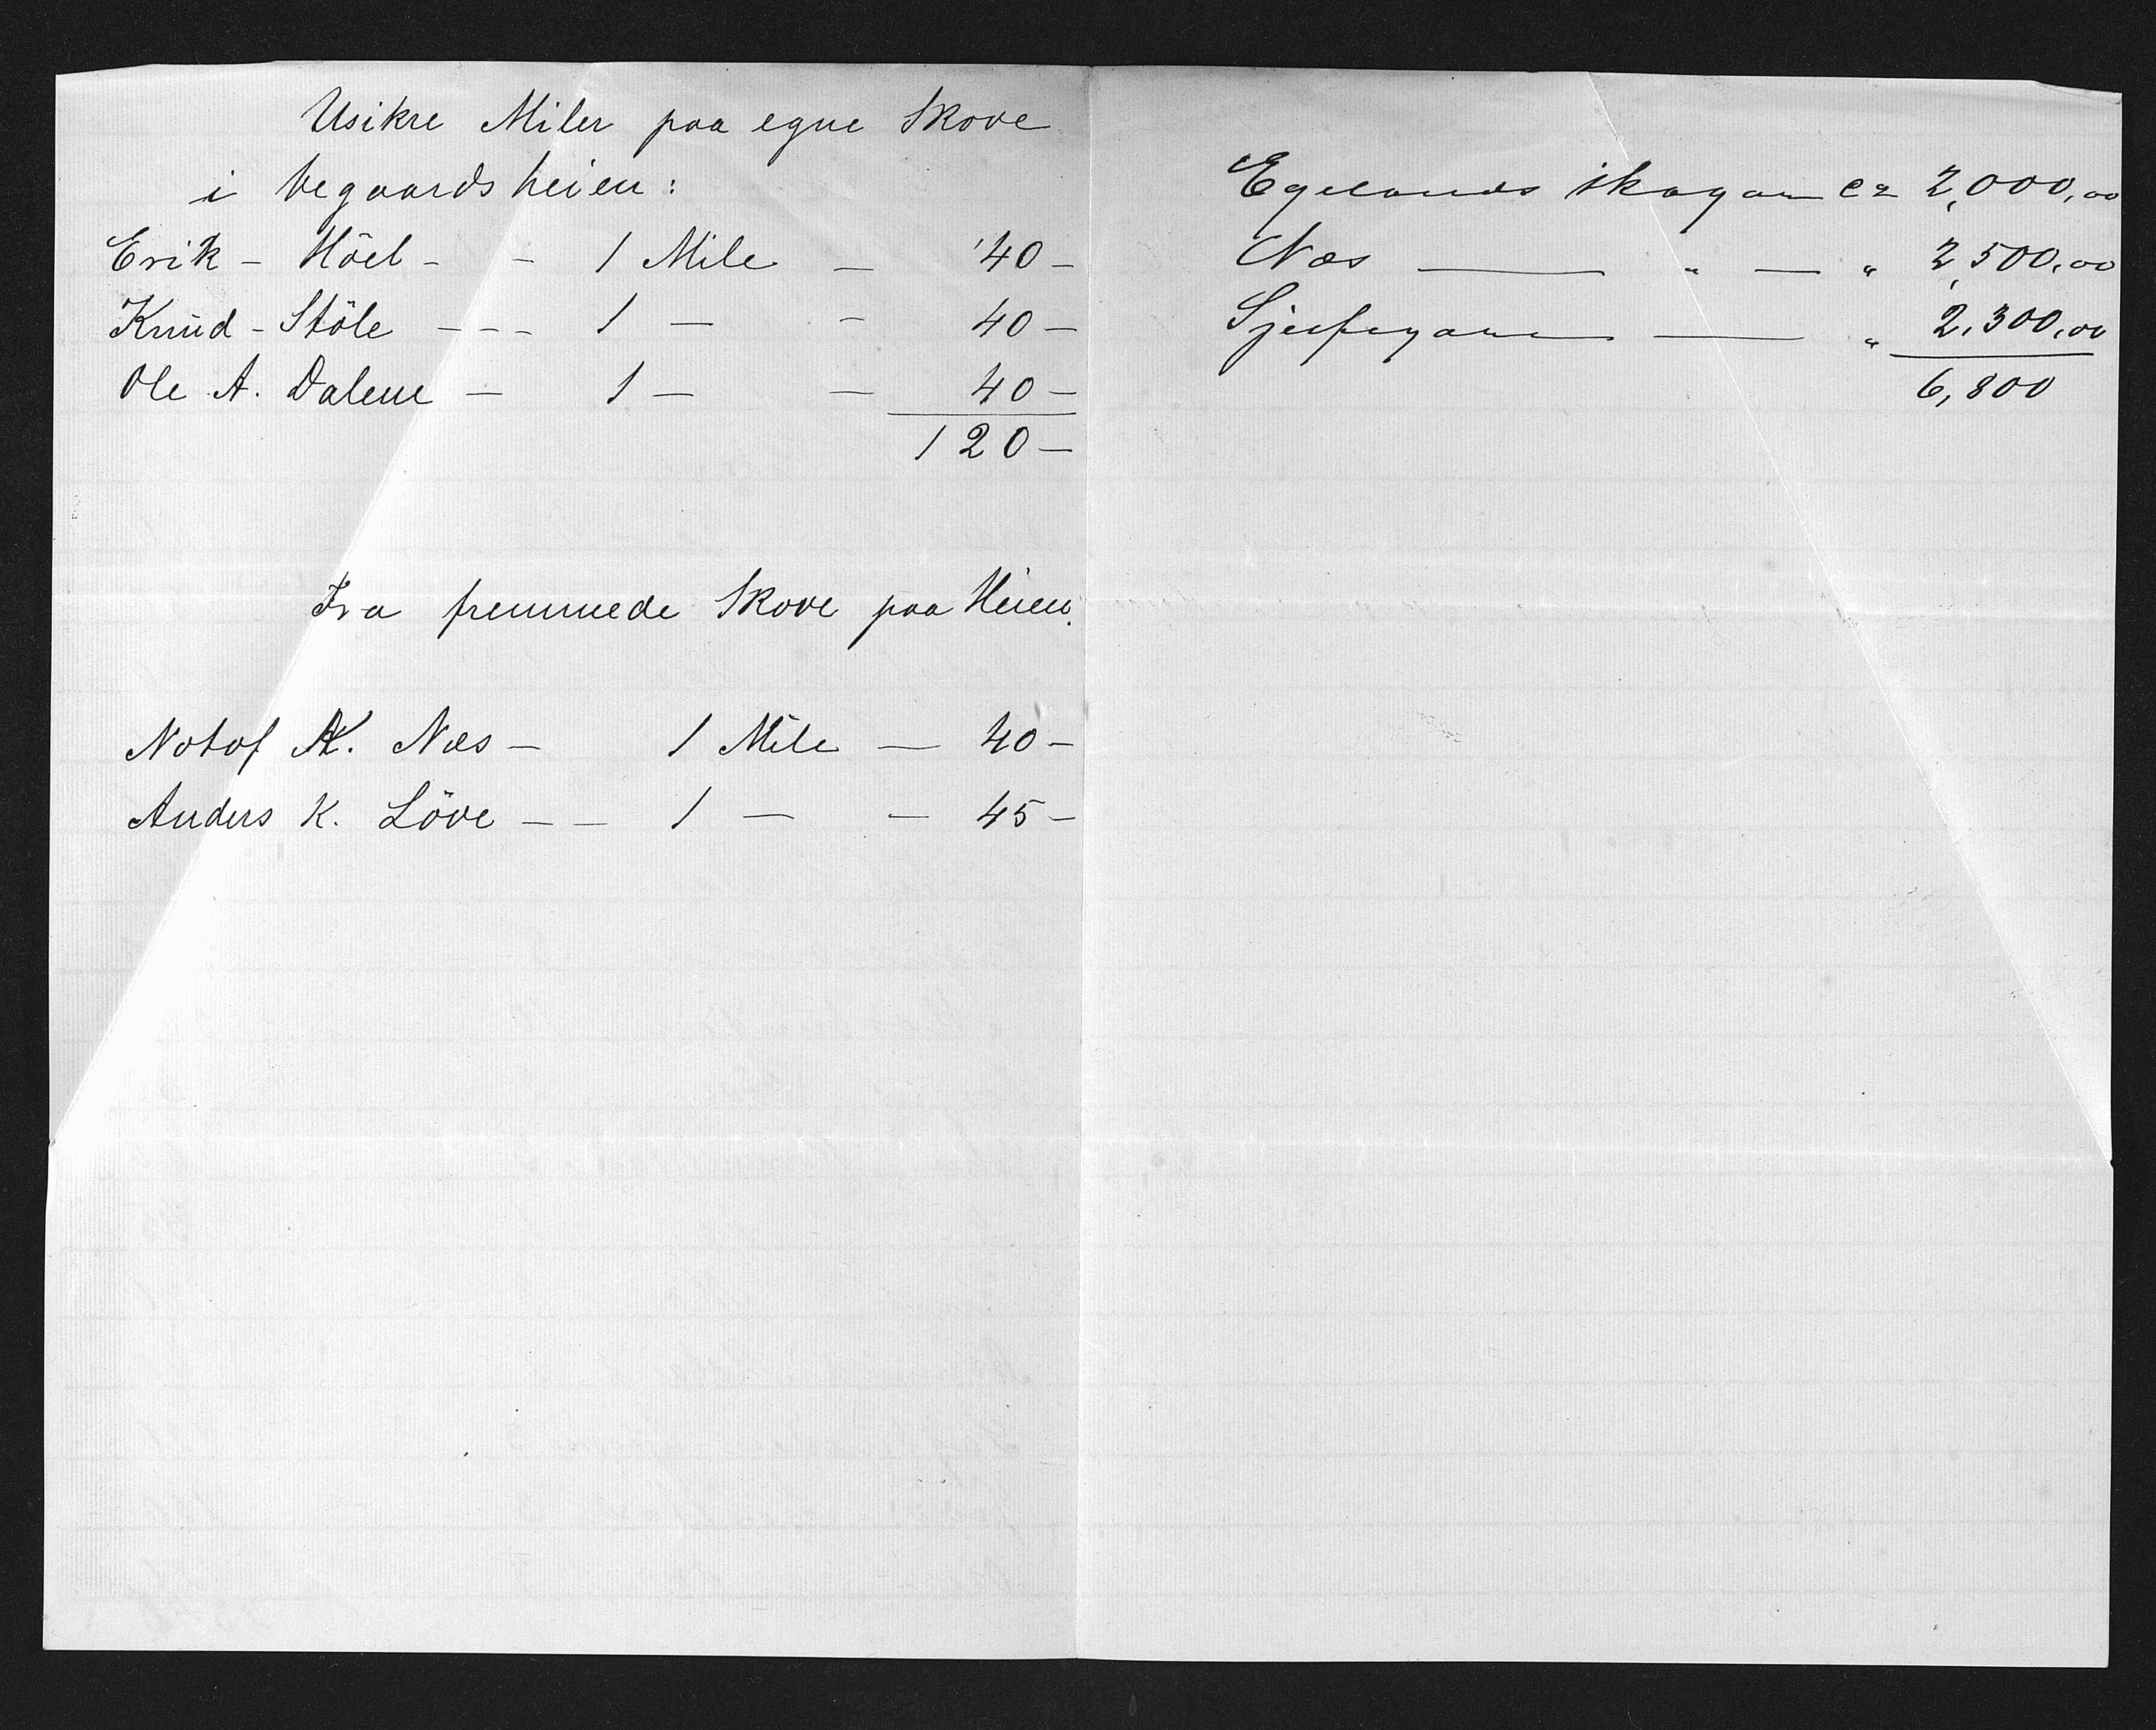 Usikre Miler paa egne Skove
i Vegaardsheien:
Erik - Höel - - 1 Mile — 40 —
Knud - Stöle - - - 1 — — 40 —
Ole A. Dalene — 1 — — 40 —
120 —
Fra fremmede Skove paa Heien.
Notof K. Næs — 1 Mile — 40 —
Anders K. Löve — — 1 — — 45 —
Egelands skogan ca 2,000,00
Næs — " — " 2,500,00
— " 2,300,00
6,800